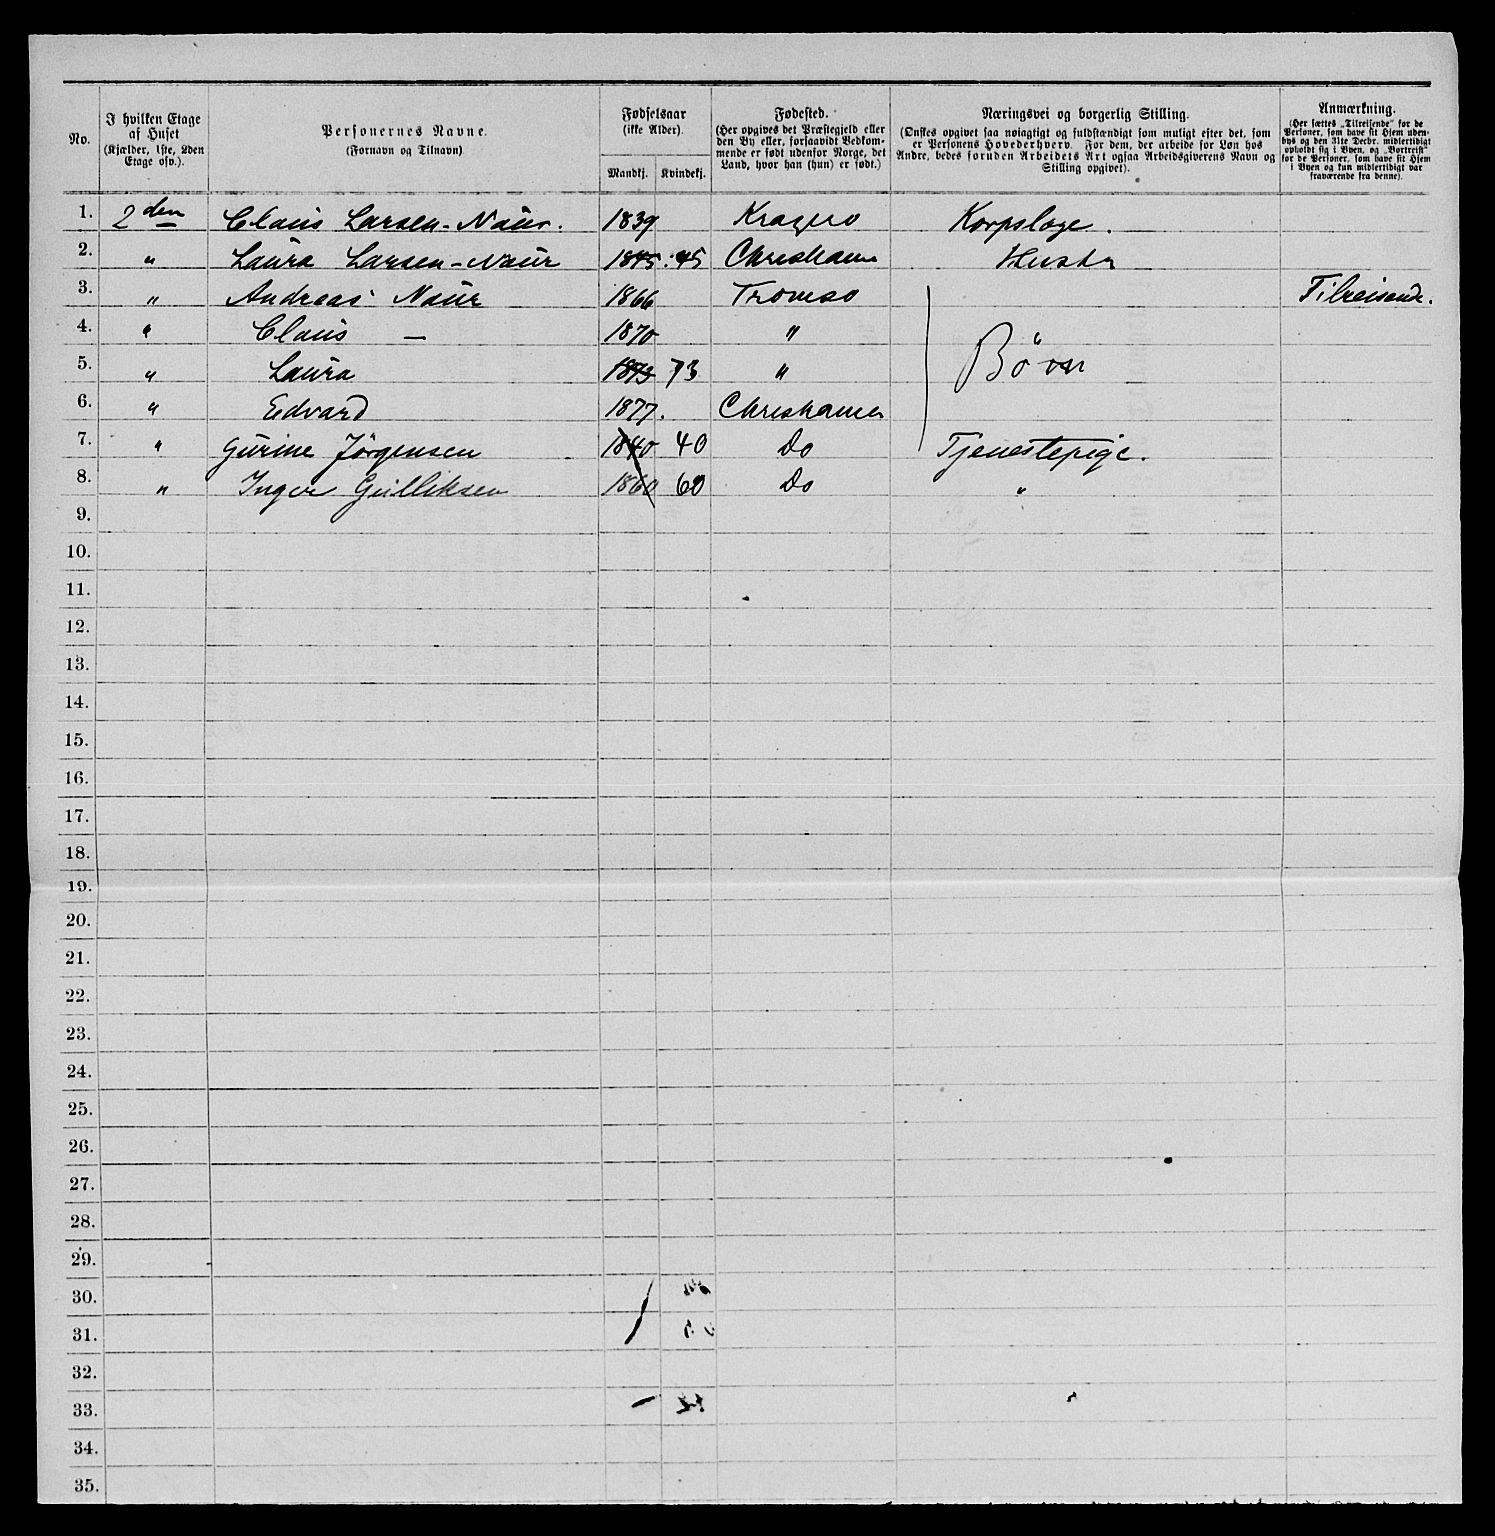 No.
I hvilken Etage af Huset (Kjælder, 1ste, 2den Etage osv.).
Personernes Navne.
(Fornavn og Tilnavn)
Fødselsaar
(ikke Alder).
Mandkj. Kvindekj.
Fødested.
(Her opgives det Præstegjeld eller
den By eller, forsaavidt Vedkom-
mende er født udenfor Norge, det
Land, hvor han (hun) er født.)
Næringsvei og borgerlig Stilling.
(Ønskes opgivet saa nøiagtigt og fuldstændigt som muligt efter det, som
er Personens Hovederhverv. For dem, der arbeide for Løn hos
Andre, bedes foruden Arbeidets Art ogsaa Arbeidsgiverens Navn og
Stilling opgivet).
Anmærkning.
(Her sættes „Tilreisende“ for de
Personer, som have sit Hjem uden-
bys og den 31te Decbr. midlertidigt
opholdt sig i Byen, og „Bortreist“
for de Personer, som have sit Hjem
i Byen og kun midlertidigt var
fraværende fra denne).
1. 2den Claus Larsen-Naur. 1839 Kragerø Korpslæge.
2. " Laura Larsen-Naur 1845 : 45 Christiania Hustr
3. " Andreas Naur 1866 Tromsø Tilreisende.
4. " Claus — 1870 "
5. " Laura 1873 73 " Børn
6. " Edvard 1877. Christiania
7. " Gurine Jørgensen 1840 40 Do Tjenestepige.
8. " Inger Gulliksen 1860 60 Do "
9.
10.
11.
12.
13.
14.
15.
16.
17.
18.
19.
20.
21.
22.
23.
24.
25.
26.
27.
28.
29.
30.
31.
32.
33.
34.
35.